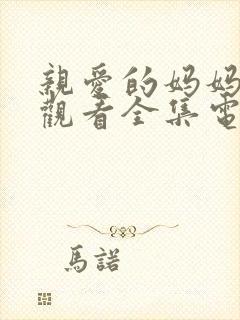 親愛的妈妈
觀看全集電
馬諾